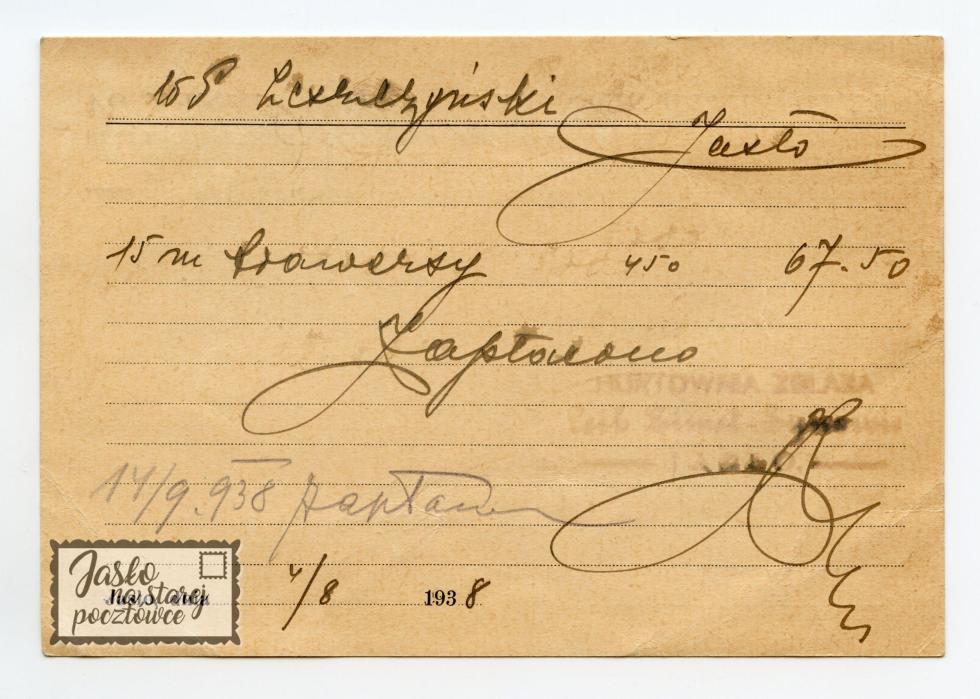 WP Leszczyński
Jasło
15 m trawersy 450 67.50
Zapłacono
14/9.938 zapłac
4/8 1938
Jasło
na starej
pocztówce